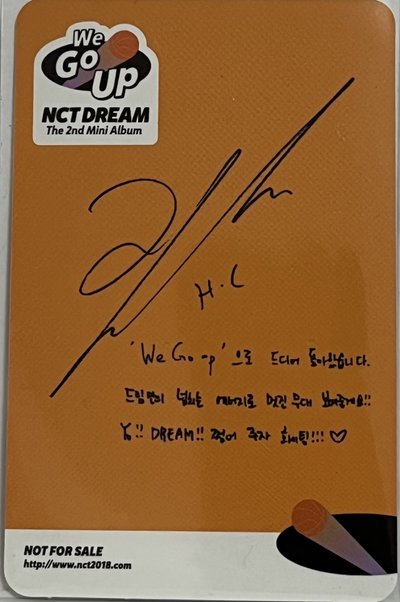 We
Go
Up
NCT DREAM
The 2nd Mini Album
H.C
'We Go up'으로 드디어 돌아왔습니다.
드림만의 넘치는 에너지로 멋진 무대 보여줄게요!!
Yo!! DREAM!! 찢어 주자 화이팅!!! ♡
NOT FOR SALE
http://www.nct2018.com